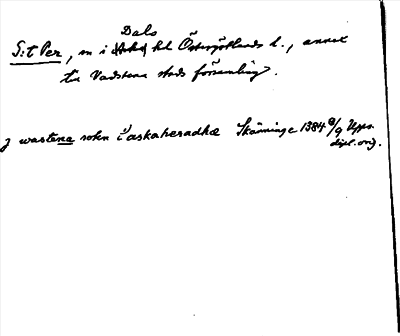 Dals
S:t Per, sn i hd Östergötlands l., annex
till Vadstena stads församling.
j wastena sokn i askaheradhæ Skänninge 1384 8/9 Upps.
dipl. orig.